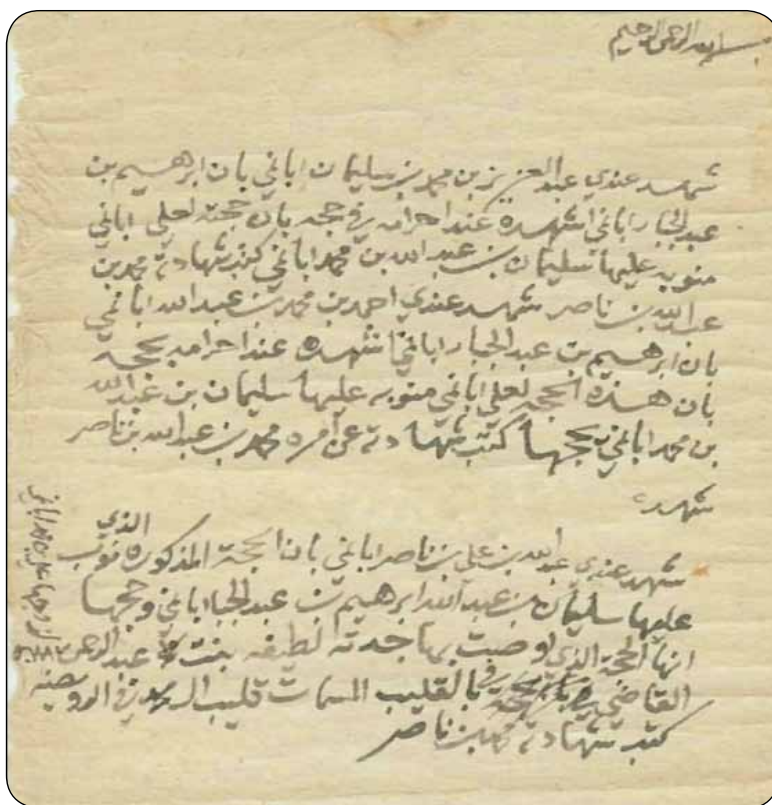 بسم الله الرحمن الرحيم
شهد عندي عبد العزيز بن محمد بن سليمان اباغي بان ابرهيم بن
عبد الجبار اباغي اشهده عند احرامه في حجه بان حجته لعلي اباغي
منوبه عليها سليمان بن عبد الله بن محمد اباغي كتب شهادته محمد بن
عبد الله بن ناصر شهد عندي احمد بن محمد بن عبد الله اباغي
بان ابرهيم بن عبد الجبار اباغي اشهده عند احرامه بحجه
بان هذه الحجه لعلي اباغي منوبه عليها سليمان بن عبد الله
بن محمد اباغي بحجها كتب شهادته عن امره محمد بن عبد الله بن ناصر
شهد
شهد عندي عبد الله بن علي بن ناصر اباغي بان الحجة المذكوره الذي نوب
عليها سليمان بن عبد الله ابرهيم بن عبد الجبار اباغي وحجها
انها الحجة الذي اوصت بها جدته لطيفه بنت عبد الرحمن
القاضي بالقليب المسمات قليب في الوصيه
كتب شهادته محمد بن ناصر